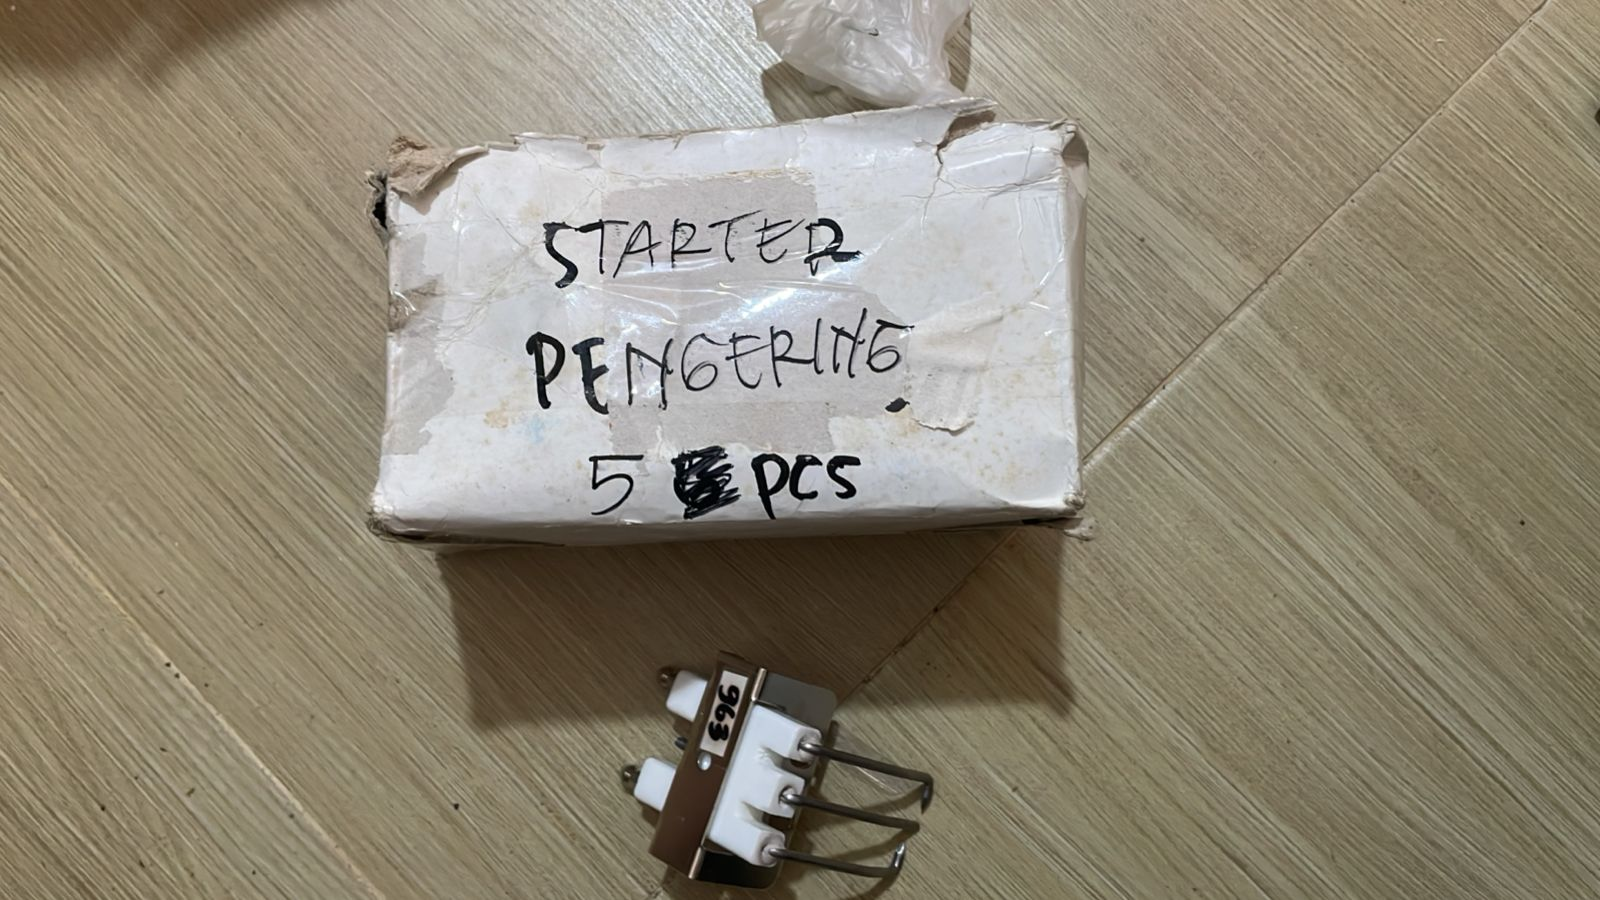 STARTER
PENGERING.
5 pcs
963